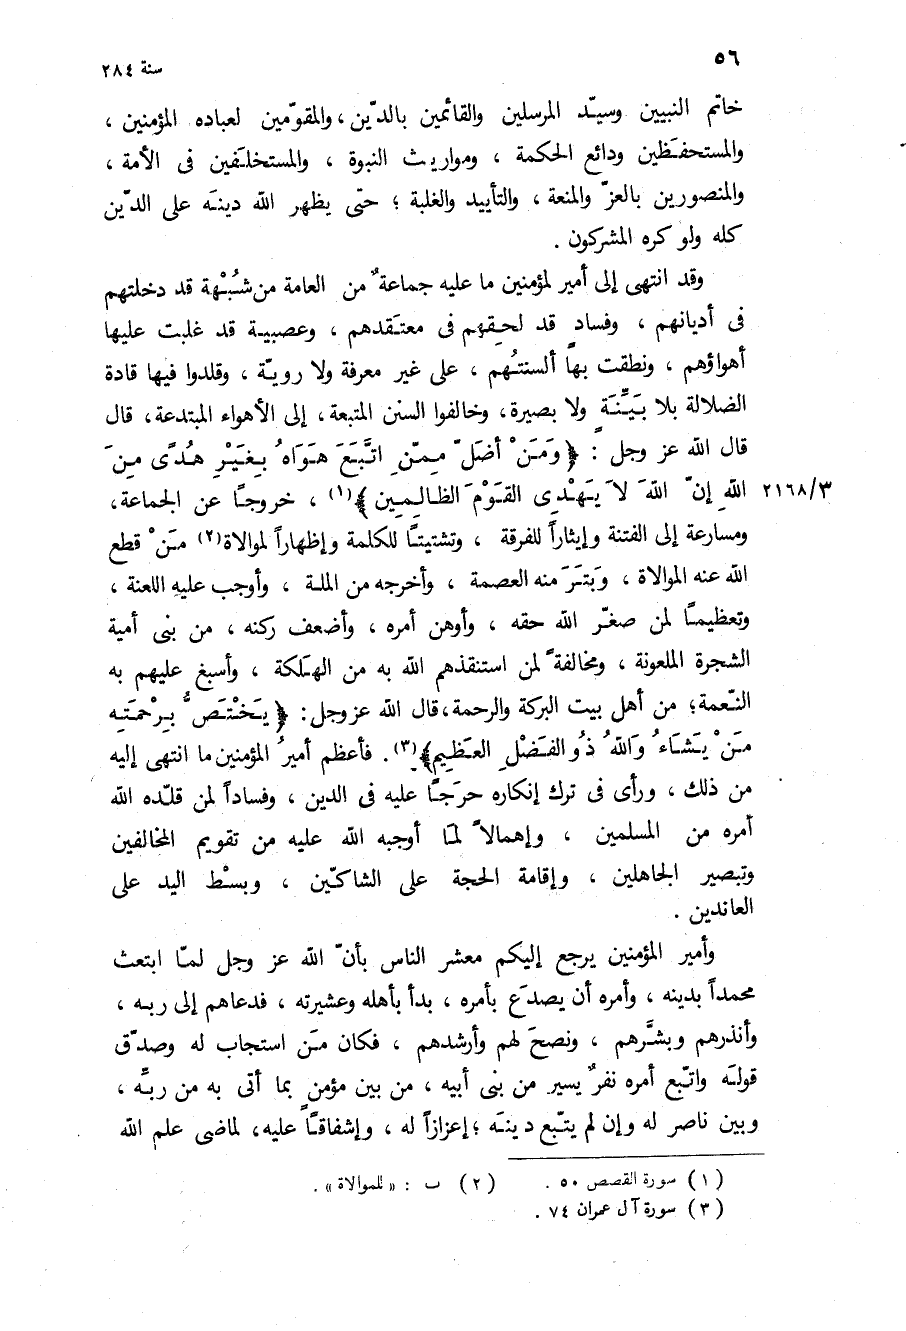 ٥٦
سنة ٢٨٤
خاتم النبيين وسيّد المرسلين والقائمين بالدّين، والمقوّمين لعباده المؤمنين ،
والمستحفَظين ودائع الحكمة ، ومواريث النبوة ، والمستخلَفين فى الأمة ،
والمنصورين بالعزّ والمنعة ، والتأييد والغلبة ؛ حتّى يظهر الله دينَه على الدّين
كله ولو كره المشركون .
وقد انتهى إلى أمير لمؤمنين ما عليه جماعةٌ من العامة من شُبْهة قد دخلتهم
فى أديانهم ، وفسادٍ قد لحقهم فى معتقَدهم ، وعصبية قد غلبت عليها
أهواؤهم ، ونطقت بها ألسنتُهم ، على غير معرفة ولا رويّة ، وقلدوا فيها قادة
الضلالة بلا بَيِّنَةٍ ولا بصيرة، وخالفوا السنن المتبعة، إلى الأهواء المبتدعة، قال
قال الله عز وجل : ﴿ وَمَنْ أضَلّ مِمّنِ اتَّبَعَ هَوَاهُ بِغَيْرِ هُدًى مِنَ
اللهِ إنّ اللهَ لاَ يَهْدِى القَوْمَ الظالِمِين ﴾(١) ، خروجًا عن الجماعة، ٢١٦٨/٣
ومسارعة إلى الفتنة وإيثاراً للفرقة ، وتشتيتًا للكلمة وإظهاراً لموالاة(٢) مَنْ قطع
الله عنه الموالاة ، وبَتَرَ منه العصمة ، وأخرجه من الملة ، وأوجب عليه اللعنة ،
وتعظيمًا لمن صغّر الله حقه ، وأوهن أمره ، وأضعف ركنه ، من بنى أمية
الشجرة الملعونة ، ومخالفةً لمن استنقذهم الله به من الهلَكة ، وأسبغ عليهم به
النّعمة؛ من أهل بيت البركة والرحمة، قال الله عز وجل: ﴿ يَخْتَصُّ بِرحْمَتِه
مَنْ يَشَاءُ وَاللهُ ذُو الفَضْلِ العَظِيمِ﴾(٣). فأعظم أميرُ المؤمنين ما انتهى إليه
من ذلك ، ورأى فى ترك إنكاره حرَجًا عليه فى الدين ، وفساداً لمن قلّده الله
أمره من المسلمين ، وإهمالاً لمَا أوجبه الله عليه من تقويم المخالفين
وتبصير الجاهلين ، وإقامة الحجة على الشاكّين ، وبسْط اليد على
العاندين .
وأمير المؤمنين يرجع إليكم معشر الناس بأنّ الله عز وجل لمّا ابتعث
محمداً بدينه ، وأمره أن يصدَع بأمره ، بدأ بأهله وعشيرته ، فدعاهم إلى ربه ،
وأنذرهم وبشَّرهم ، ونصحَ لهم وأرشدهم ، فكان مَن استجاب له وصدّق
قولَه واتّبع أمره نفرٌ يسير من بنى أبيه ، من بين مؤمنٍ بما أتى به من ربّه ،
وبين ناصر له وإن لم يتّبع دينَه ؛ إعزازاً له ، وإشفاقًا عليه، لماضى علم الله
(١) سورة القصص ٥٠ . (٢) ب : « للموالاة » .
(٣) سورة آل عمران ٧٤ .